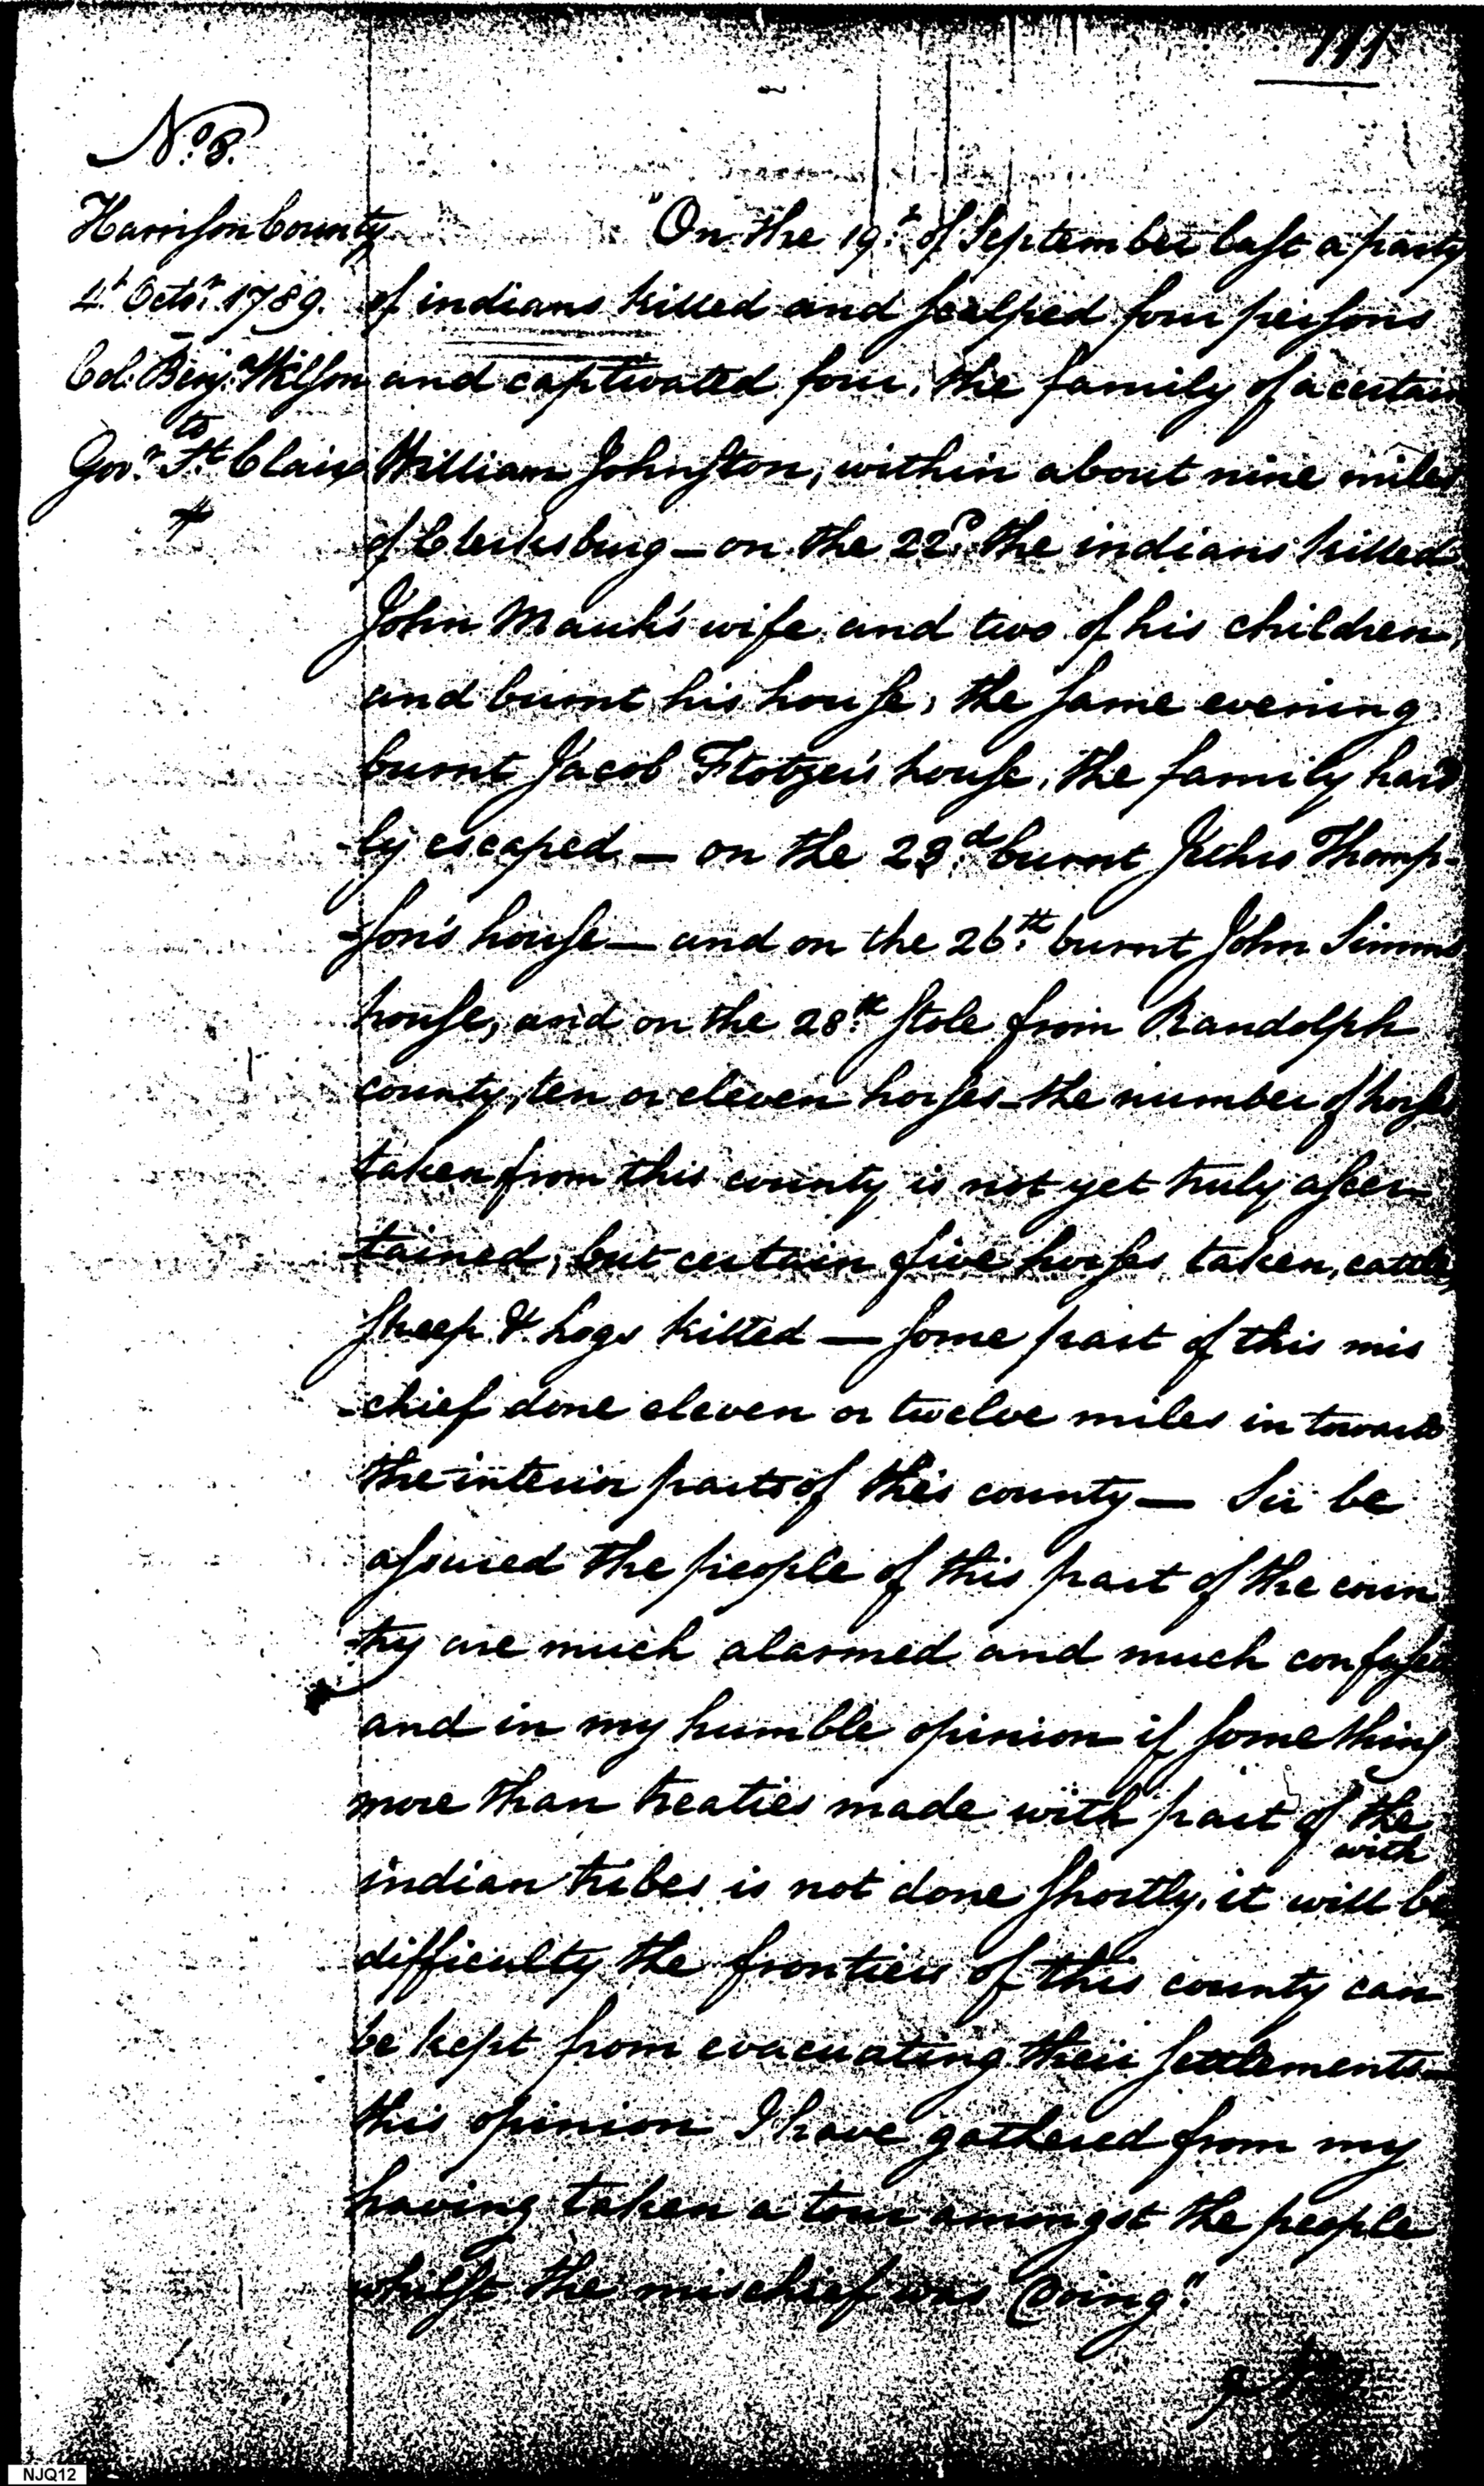 111
No. 8.
Harrison County
4th Octor. 1789.
Col. Benj. Wilson
to
Govr. St. Clair
"On the 19t. of September last a party
of indians killed and scalped four persons
and captivated four, the family of a certain
William Johnston, within about nine miles
of Clerksburg — on the 22d. the indians killed
John Mauk's wife and two of his children,
and burnt his house, the same evening
burnt Jacob house, the family hard
-ly escaped — on the 23d. burnt Jethro Thomp-
-son's house — and on the 26th. burnt John Simms
house, and on the 28th. stole from Randolph
county, ten or eleven horses - the number of horses
taken from this county is not yet truly ascer-
-tained, but certain five horses taken, cattle,
sheep & hogs killed — some part of this mis
-chief done eleven or twelve miles in towards
the interior parts of this county — Sir be
assured the people of this part of the coun
-try are much alarmed and much confused
and in my humble opinion if some thing
more than treaties made with part of the
indian tribes is not done shortly, it will be with
difficulty the frontiers of this county can
be kept from evacuating their settlements —
this opinion I have gathered from my
having taken a tour amongst the people
whilst the mischief was doing."
NJQ12